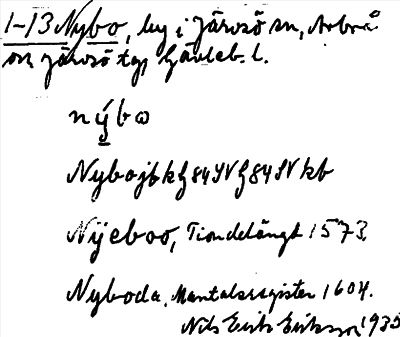 1-13 Nybo, by i Järvsö sn, Arbrå
och Järvsö tg, Gävleb. l.
nýbω
Nybo jbk G84SV G84SV kb
Nijeboo, Tiondelängd 1573.
Nyboda. Mantalsregister 1604.
Nils Erik Eriksson 1935